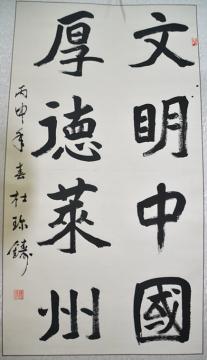 文明中國
厚德萊州
丙申年春杜珍鑄